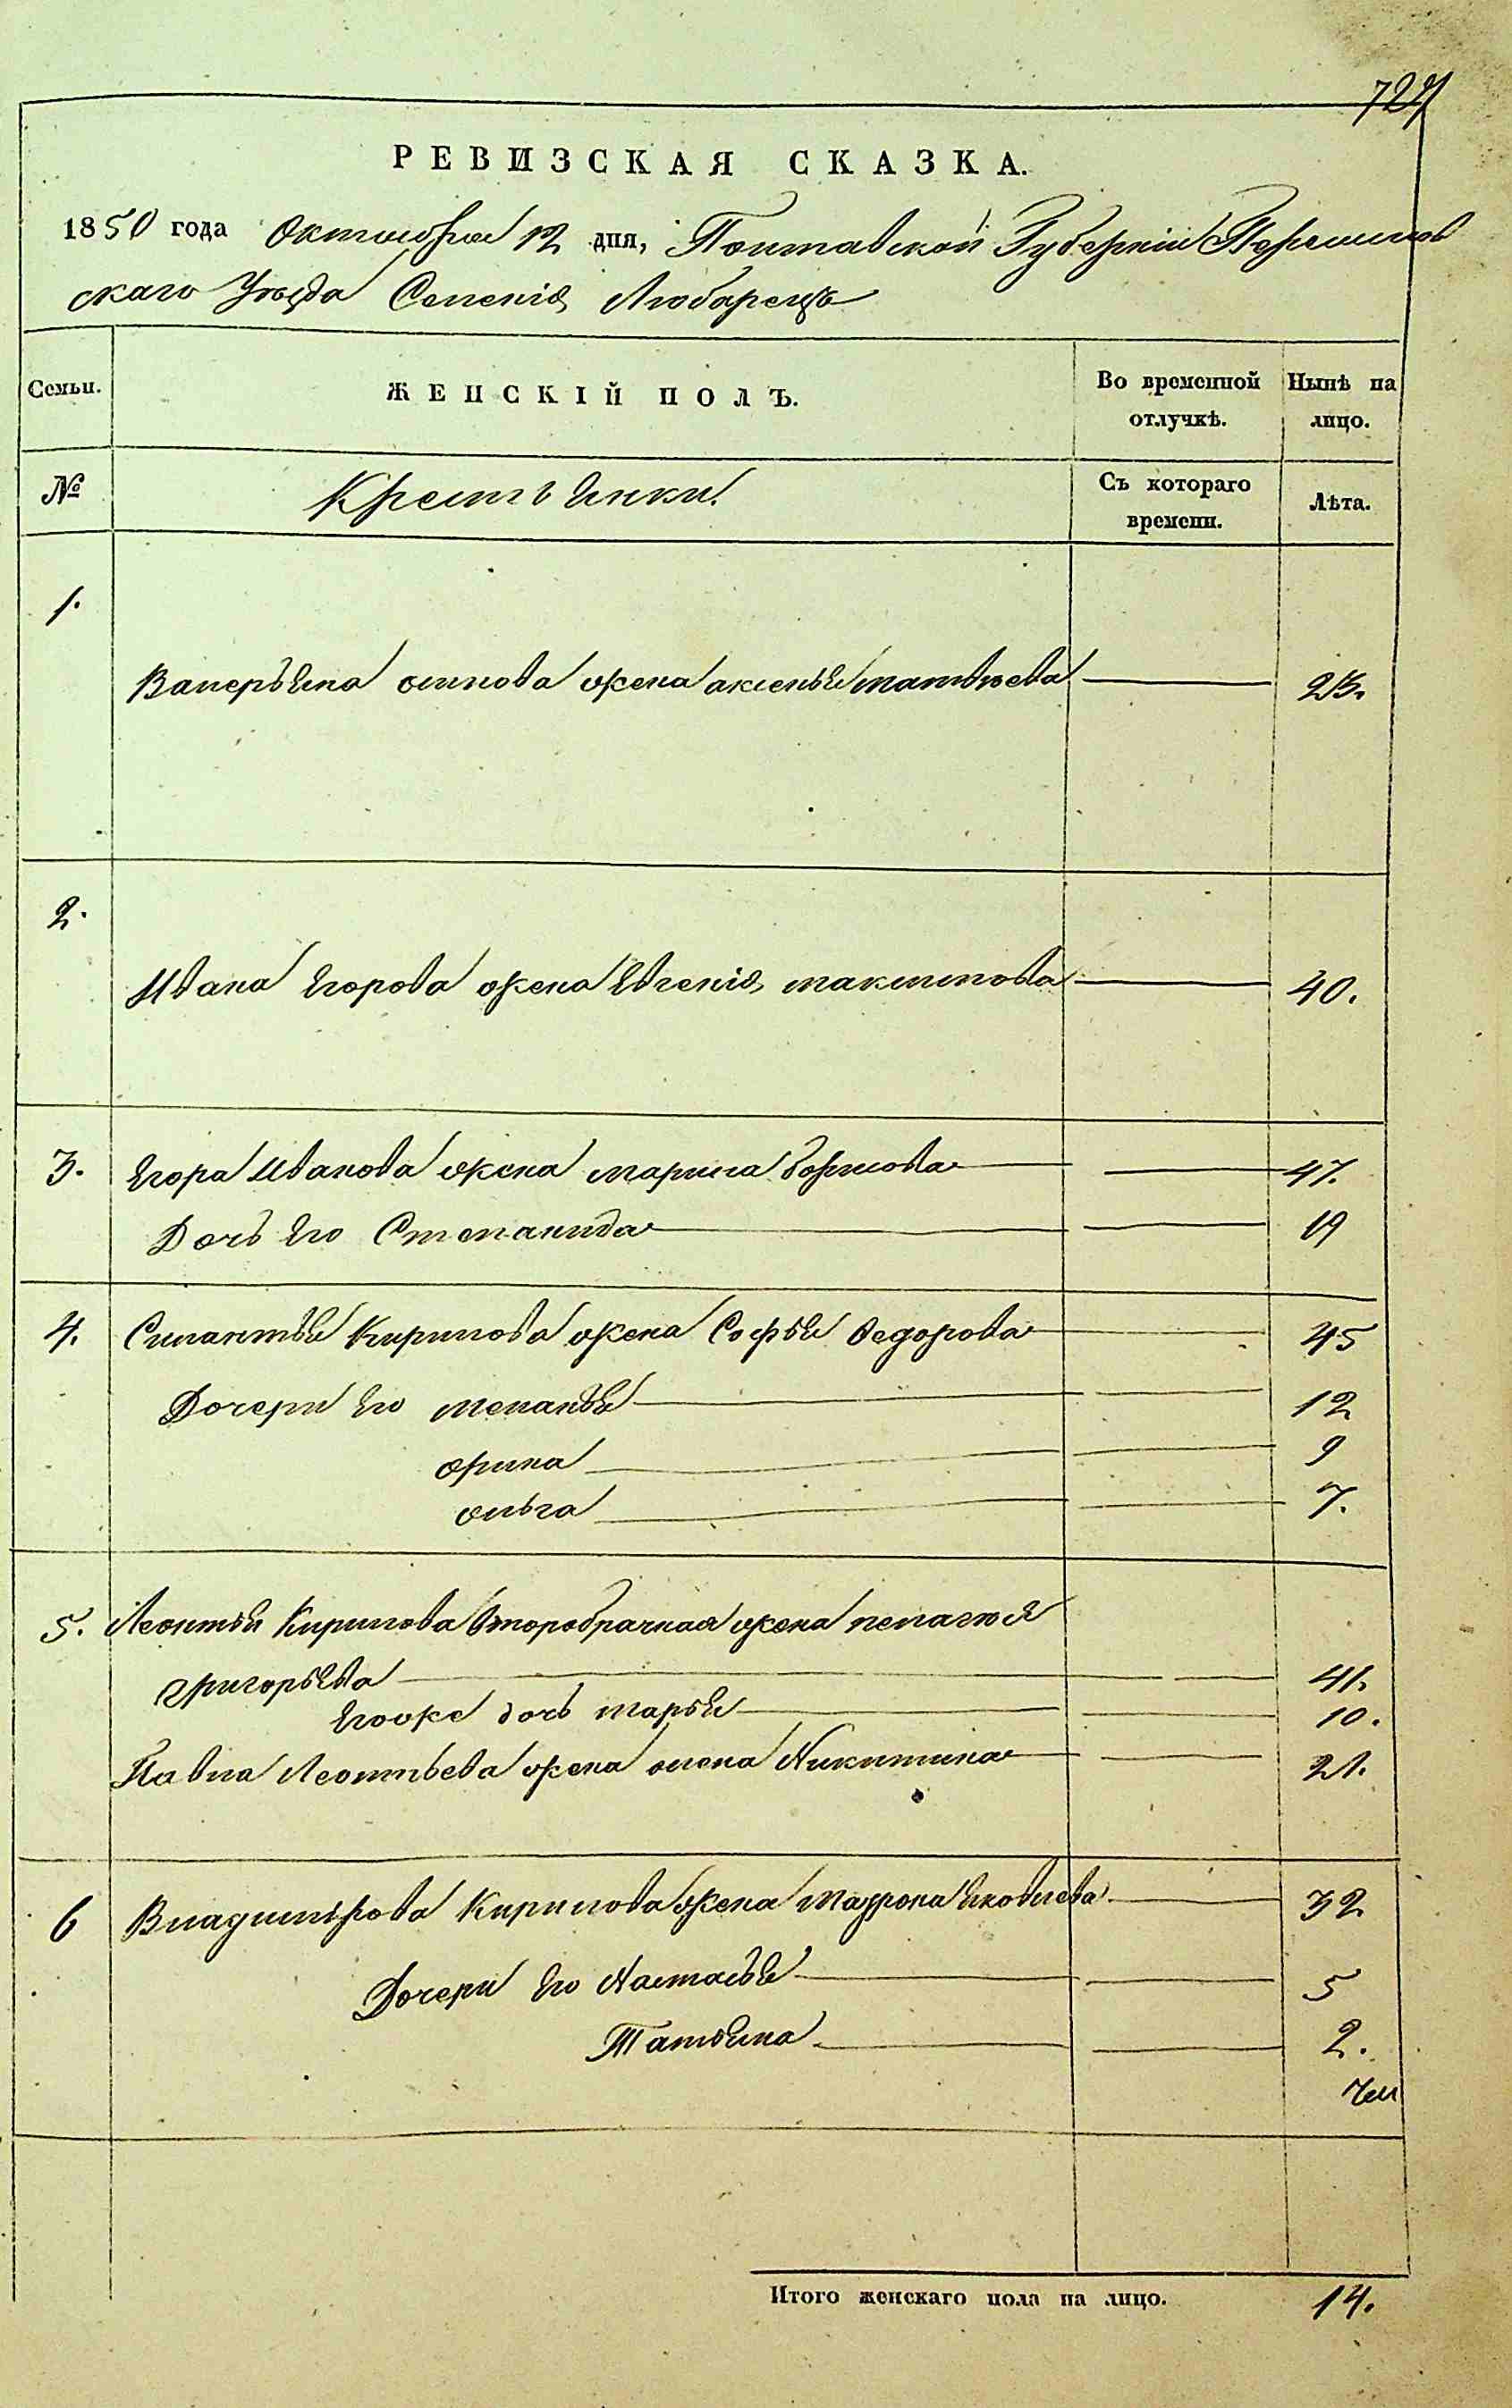 727
РЕВИЗСКАЯ СКАЗКА.
1850 года Октября 12 дня, Полтавской Губерніи Переяслов
скаго Уѣзда Селенія Любарецъ
Семьи. ЖЕНСКІЙ ПОЛЪ. Во временной отлучкѣ. Нынѣ на лицо.
№ Крестьянки. Съ котораго времени. Лѣта.
1.
Валерьяна осипова жена аксенья матвѣева 23.
2.
Ивана Егорова жена Евгенія максимова 40.
3. Егора Иванова жена марина борисова 47.
Дочь Его Степанида 19
4. Силантья Кирилова жена Софья Федорова 45
Дочери Его меланья 12
орина 9
ольга 7.
5. Леонтья Кирилова второбрачная жена пелагея
григорьева 41.
Егоже дочь марья 10.
Павла Леонтьева жена олена Никитина 21.
6 Владимѣрова Кирилова жена Мафрона Яковлева 32
Дочери Его Настасья 5
Татьяна 2.
Итого женскаго пола на лицо. 14.